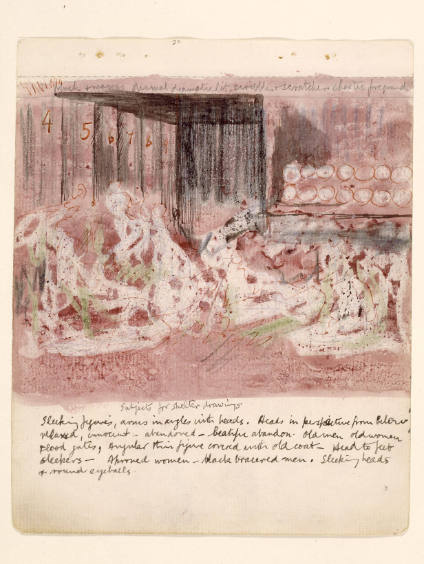 20
dramatic lit, scratches chaotic foreground
4 5 6 7 8
Subjects for shelter drawings
Sleeping figures, arms in angles with heads. Heads in perspective from below
relaxed, innocent – abandoned – beatific abandon. Old men old women
Flood gates, angular thin figure covered with old coat – Head to feet
sleepers – Aproned women – black braced men. Sleeping heads
& round eyeballs.